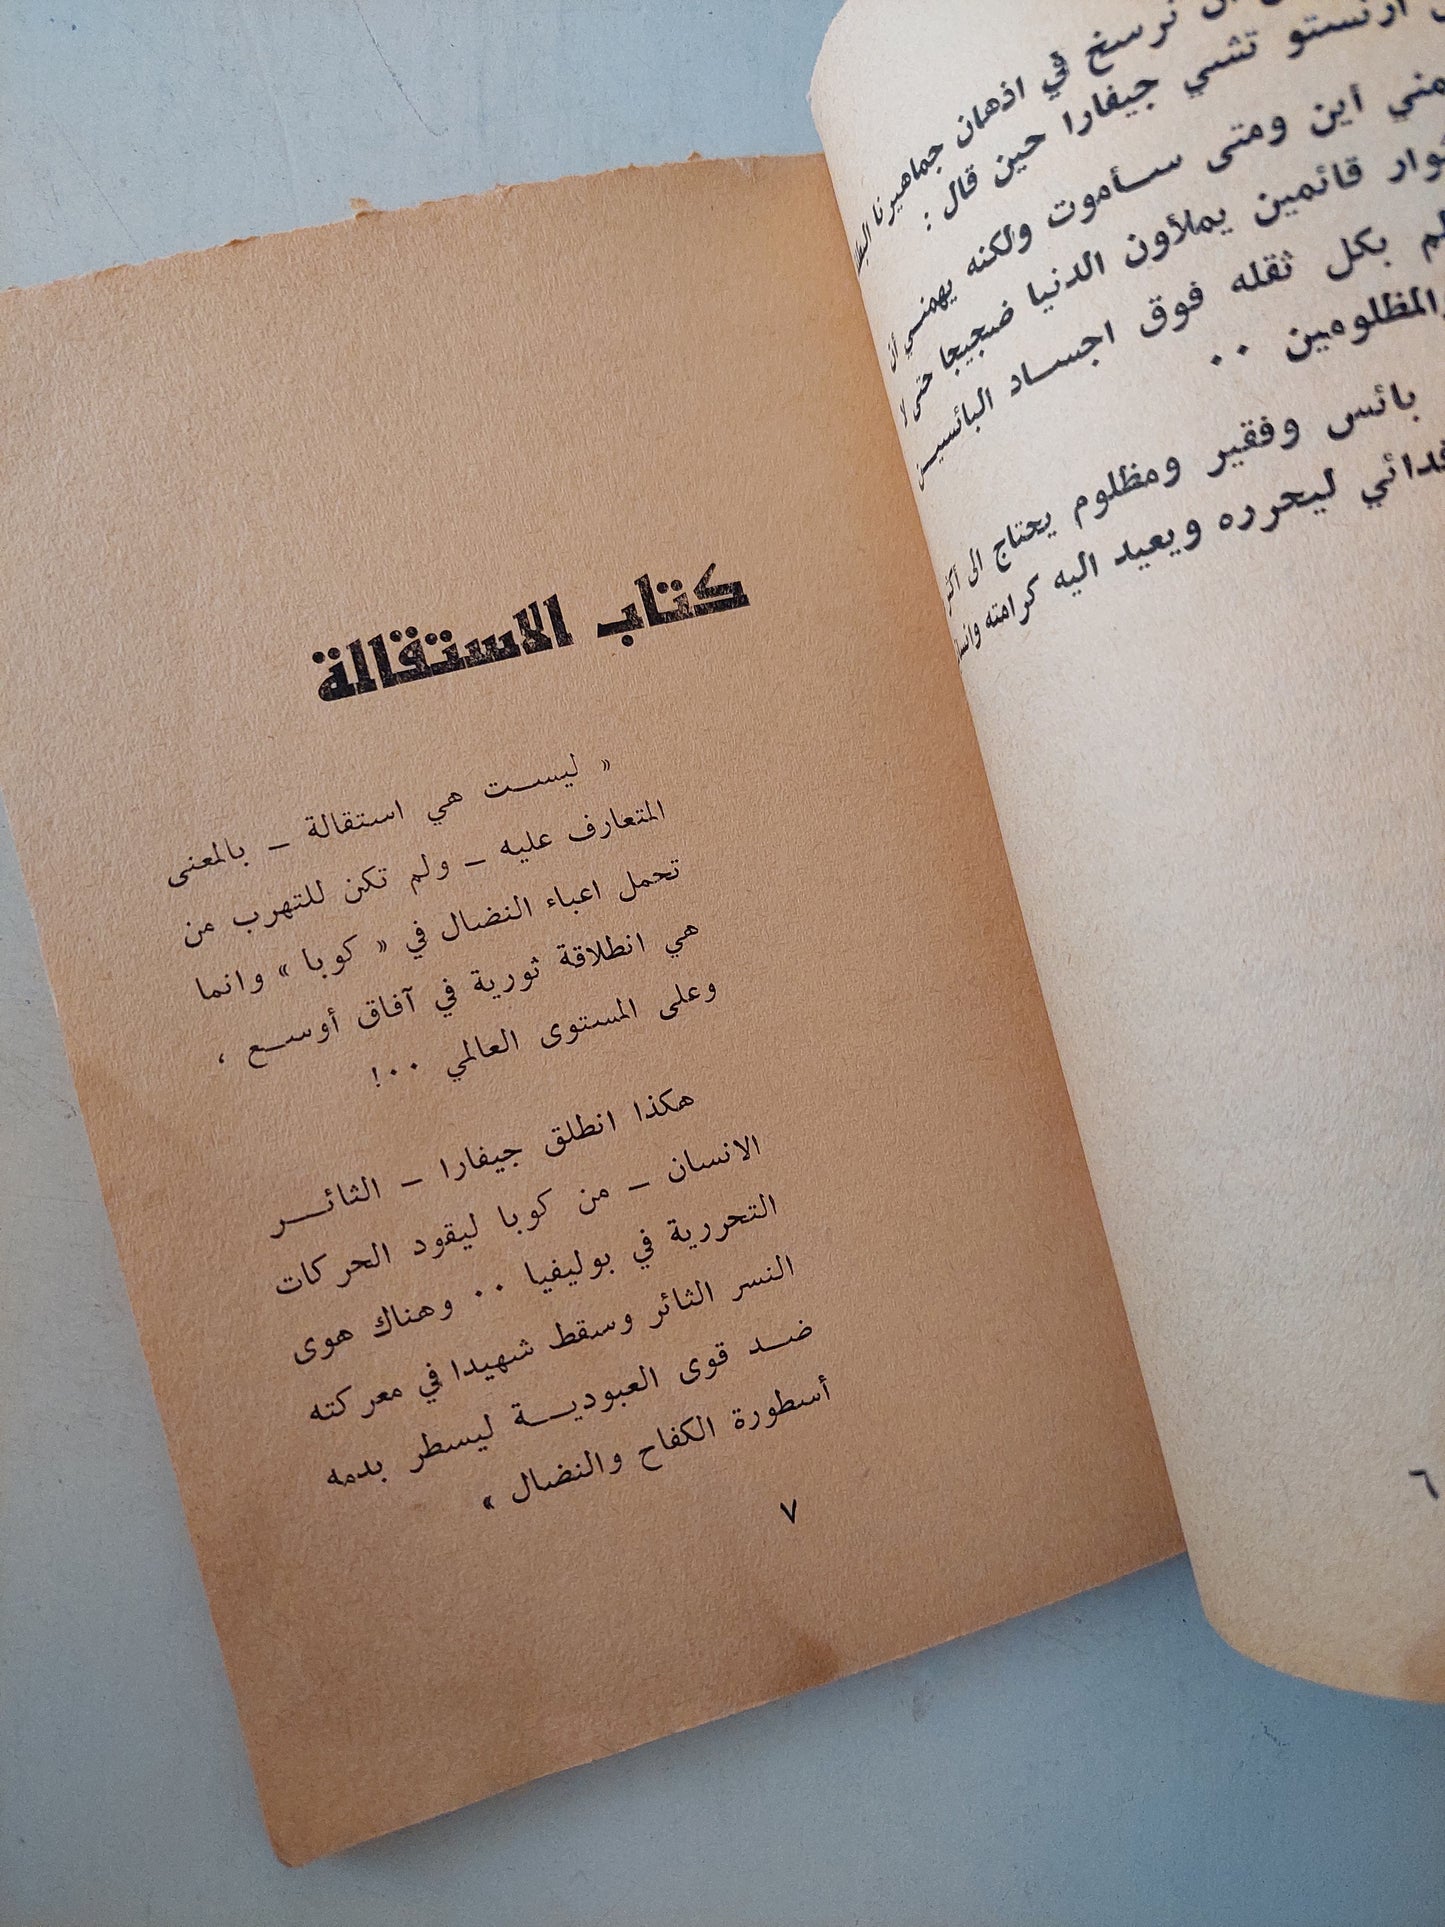 نرسخ في اذهان جماهيرنا
ارنستو تشي جيفارا حين قال :
أين ومتى سأموت ولكنه يهمني أن
قائمين يملأون الدنيا ضجيجا حتى لا
بكل ثقله فوق اجساد البائسين
والمظلومين ٠٠
بائس وفقير ومظلوم يحتاج الى أكثر
ليحرره ويعيد اليه كرامته
٦
كتاب الاستقالة
« ليست هي استقالة ــ بالمعنى
المتعارف عليه ــ ولم تكن للتهرب من
تحمل اعباء النضال في « كوبا » وانما
هي انطلاقة ثورية في آفاق أوسع ،
وعلى المستوى العالمي ٠٠!
هكذا انطلق جيفارا ــ الثائر
الانسان ــ من كوبا ليقود الحركات
التحررية في بوليفيا ٠٠ وهناك هوى
النسر الثائر وسقط شهيدا في معركته
ضد قوى العبودية ليسطر بدمه
أسطورة الكفاح والنضال »
٧